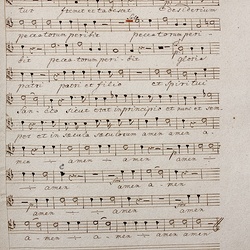 tur fremet et tabescet et desiderium
peccatorum peribit peccatorum peri-
bit peccatorum peribit gloria
patri et filio et spiritui
sancto sicut erat in principio et nunc et sem-
per et in sæcula sæculorum amen amen a-
men amen amen
amen amen amen
amen amen amen
amen amen amen